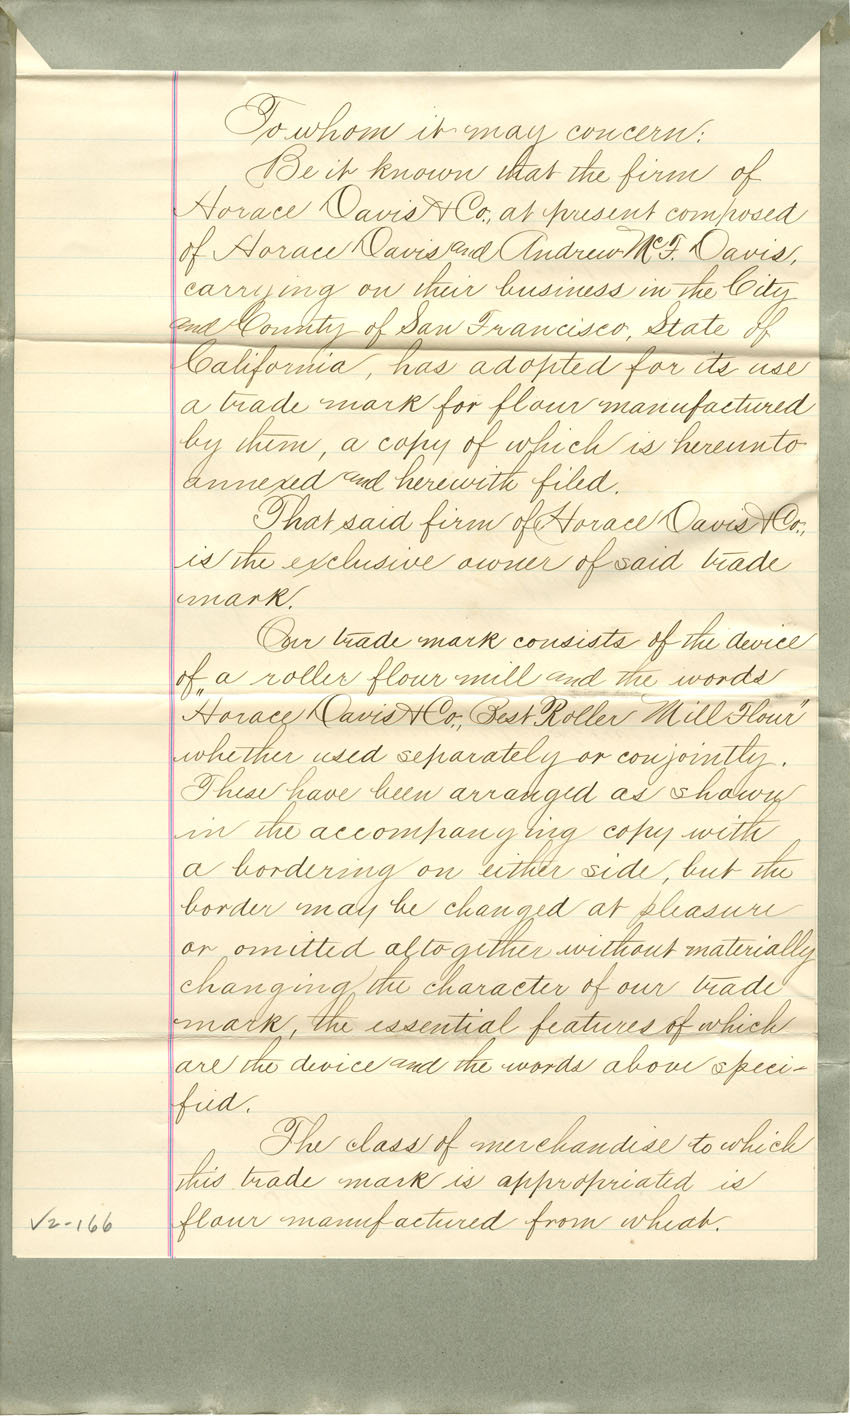 To whom it may concern:
Be it known that the firm of
Horace Davis & Co., at present composed
of Horace Davis and Andrew McF. Davis,
carrying on their business in the City
and County of San Francisco, State of
California, has adopted for its use
a trade mark for flour manufactured
by them, a copy of which is hereunto
annexed and herewith filed.
That said firm of Horace Davis & Co.,
is the exclusive owner of said trade
mark.
Our trade mark consists of the device
of a roller flour mill and the words
"Horace Davis & Co., Best Roller Mill Flour"
whether used separately or conjointly.
These have been arranged as shown
in the accompanying copy with
a bordering on either side, but the
border may be changed at pleasure
or omitted altogether without materially
changing the character of our trade
mark, the essential features of which
are the device and the words above speci-
fied.
The class of merchandise to which
this trade mark is appropriated is
flour manufactured from wheat.
V2-166